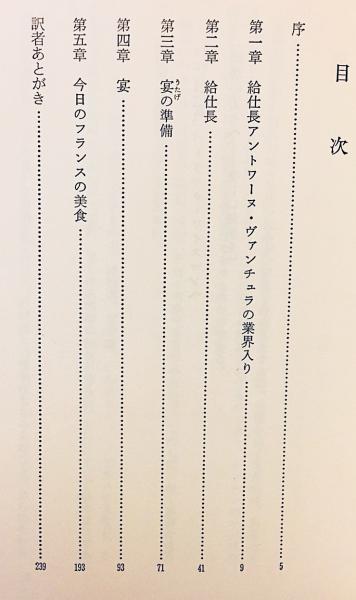 目次
序……………………5
第一章 給仕長アントワーヌ・ヴァンチュラの業界入り……………………9
第二章 給仕長……………………41
第三章 宴の準備……………………71
うたげ
第四章 宴……………………93
第五章 今日のフランスの美食……………………193
訳者あとがき……………………239